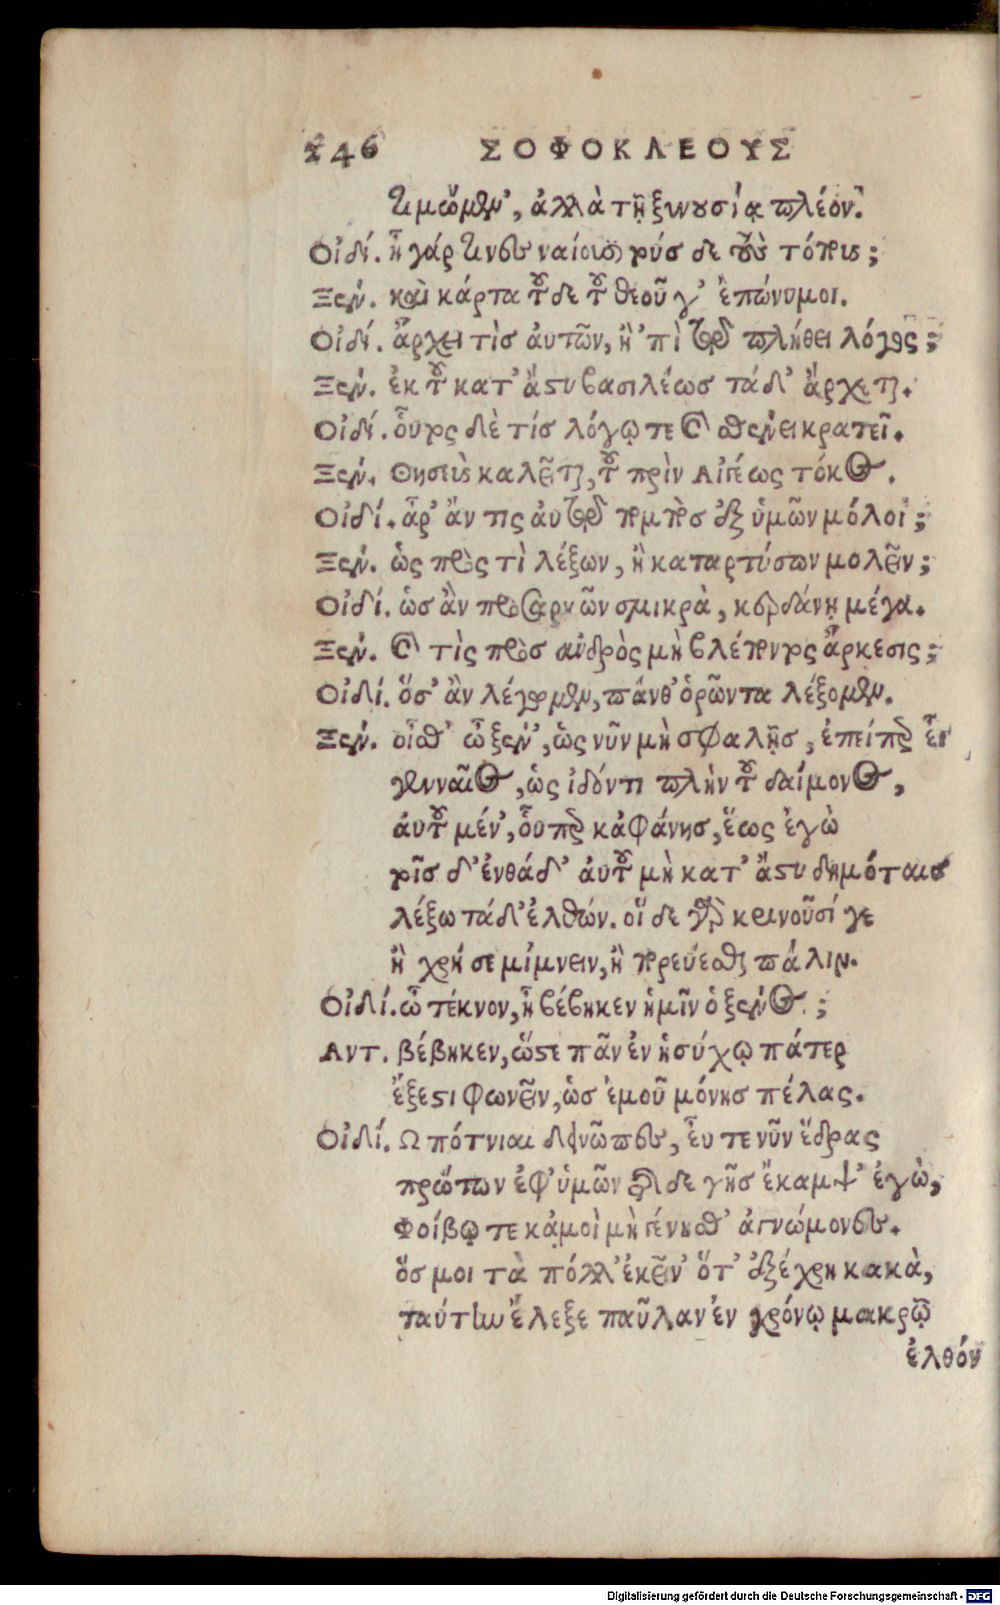 246 ΣΟΦΟΚΛΕΟΥΣ
τιμώμεν', ἀλλὰ τῇ ξυνουσίᾳ πλέον.
Οἰδί. ἦ γάρ τινες ναίουσι τούσδε τοὺς τόπους;
Ξέν. καὶ κάρτα τοῦδε τοῦ θεοῦ γ' ἐπώνυμοι.
Οἰδί. ἄρχει τὶσ ἀυτῶν, ἢ 'πὶ τῷ πλήθει λόγος;
Ξέν. ἐκ τοῦ κατ' ἄστυ βασιλέωσ τάδ' ἄρχεται.
Οἰδί. οὗτος δὲ τίσ λόγῳ τε καὶ σθένει κρατεῖ.
Ξέν. Θησεὺς καλεῖται, τοῦ πρὶν Αἰγέως τόκος.
Οἰδί. ἆρ' ἄν τις ἀυτῷ πομπὸσ ἐξ ὑμῶν μόλοι;
Ξέν. ὡς πρὸς τὶ λέξων, ἢ καταρτύσων μολεῖν;
Οἰδί. ὡσ ἂν προσαρκῶν σμικρὰ, κερδάνῃ μέγα.
Ξέν. καὶ τὶς πρὸσ ἀνδρὸς μὴ βλέποντος ἄρκεσις;
Οἰδί. ὅσ' ἂν λέγομεν, πάνθ' ὁρῶντα λέξομεν.
Ξέν. οἶσθ' ὦ ξέν', ὡς νῦν μὴ σφαλῇσ, ἐπείπερ εἶ
γενναῖος, ὡς ἰδόντι πλὴν τοῦ δαίμονος,
ἀυτοῦ μέν', οὗπερ κἀφάνησ, ἕως ἐγὼ
τοῖσ δ' ἐνθάδ' ἀυτοῦ μὴ κατ' ἄστυ δημόταισ
λέξω τάδ' ἐλθών. οἵδε γὰρ κρινοῦσί γε
ἢ χρή σε μίμνειν, ἢ πορεύεσθαι πάλιν.
Οἰδί. ὦ τέκνον, ἦ βέβηκεν ἡμῖν ὁ ξένος;
Αντ. βέβηκεν, ὥστε πᾶν ἐν ἡσύχῳ πάτερ
ἔξεστι φωνεῖν, ὡσ ἐμοῦ μόνησ πέλας.
Οἰδί. Ω πότνιαι δεινῶπες, εὖτε νῦν ἕδρας
πρώτων ἐφ' ὑμῶν τῆσδε γῆσ ἔκαμψ' ἐγὼ,
Φοίβῳ τε κἀμοὶ μὴ γένησθ' ἀγνώμονες.
ὅσ μοι τὰ πόλλ' ἐκεῖν' ὅτ' ἐξέχρη κακὰ,
ταύτην ἔλεξε παῦλαν ἐν χρόνῳ μακρῷ
ἐλθόν
Digitalisierung gefördert durch die Deutsche Forschungsgemeinschaft - DFG